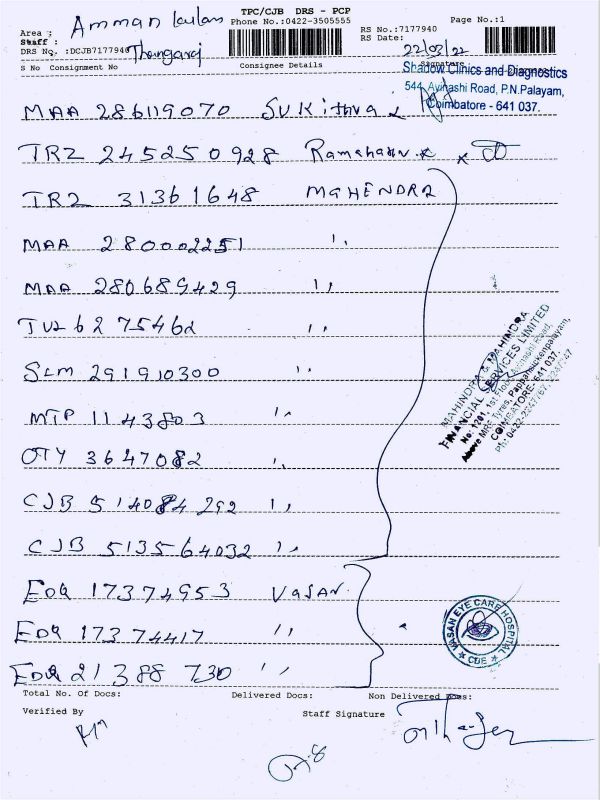 TPC/CJB DRS - PCP
Phone No.:0422-3505555
Page No.:1
Area :
Amman
Staff :
Thangaraj
DRS No. :DCJB7177940
RS No.:7177940
RS Date:
22/03/22
S No Consignment No Consignee Details Signature
Shadow Clinics and Diagnostics
544, Avinashi Road, P.N.Palayam,
Coimbatore - 641 037.
MAA 286119070
TRZ 245250928
TRZ 31361648 MAHENDRA
MAA 280002251 ''
MAA 280689429 ''
6275462 ''
SLM 291910300 ''
MTP 1143803 ''
OTY 3647082 ''
CJB 514084292 ''
CJB 513564032 ''
MAHINDRA & MAHINDRA
FINANCIAL SERVICES LIMITED
No: 1201, 1st Floor, Avinashi Road,
Above MRF Tyres, Pappanaickenpalayam,
COIMBATORE- 641 037.
EDQ 17374953 VASAN
EDQ 17374417 ''
EDQ 21388730 ''
VASAN EYE CARE HOSPITAL
CBE
Total No. Of Docs: Delivered Docs: Non Delivered Docs:
Verified By Staff Signature